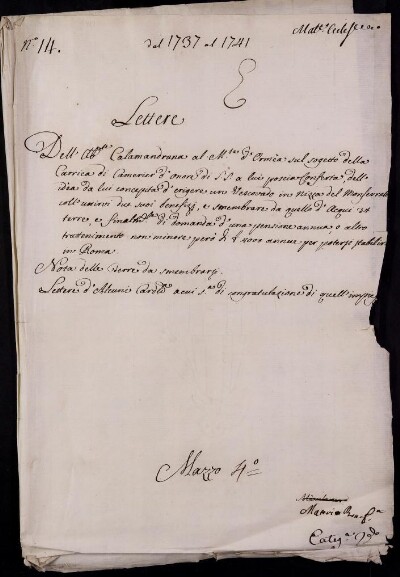 Mat.e Eccles.e
N.o 14. dal 1737 al 1741
E
Lettere
Dell'Ab.te Calamandrana al M.se d'Ormea sul sogetto della
Carrica di Camerier d'onore di S.S. a lui poscia Conferta, dell'
idea da lui conceputa d'erigere un Vescovato in Nizza del Monferrato
coll'unirvi due suoi benefizj, e smembrare da quello d'Acqui 34
terre, e finalm.te di domanda d'una pensione annua, o altro
trattenimento non minore però di £ 4000 annue per potersi stabilire
in Roma.
Nota delle Terre da smembrarsi.
Lettere d'Alcuni Card.li a cui s.a di congratulazione di quell'
Mazzo 4.o
Categ.a